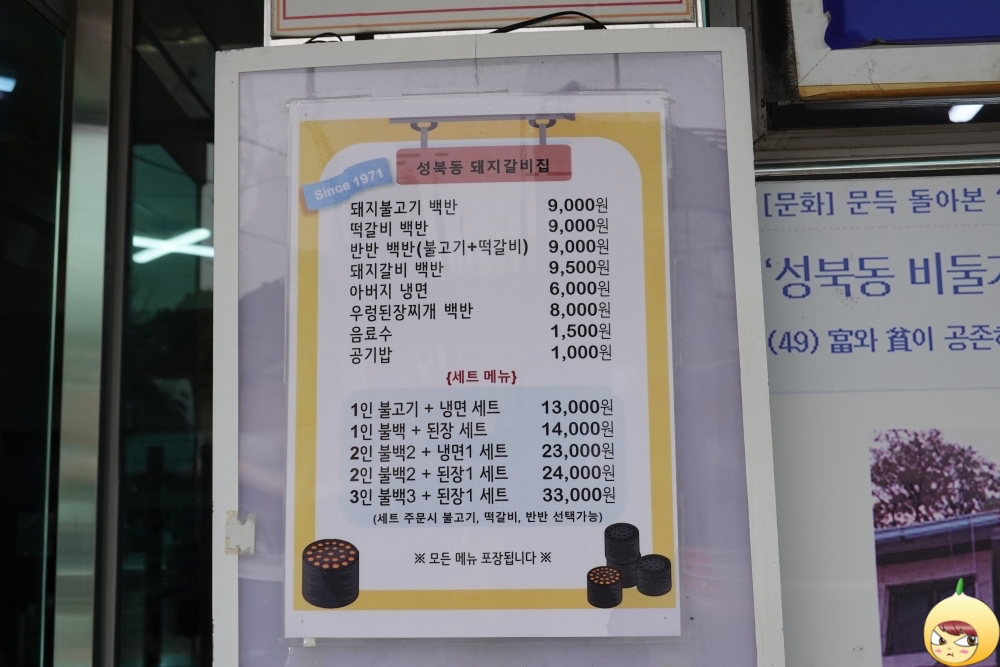 Since 1971
성북동 돼지갈비집
돼지불고기 백반 9,000원
떡갈비 백반 9,000원
반반 백반(불고기+떡갈비) 9,000원
돼지갈비 백반 9,500원
아버지 냉면 6,000원
우렁된장찌개 백반 8,000원
음료수 1,500원
공기밥 1,000원
{세트 메뉴}
1인 불고기 + 냉면 세트 13,000원
1인 불백 + 된장 세트 14,000원
2인 불백2 + 냉면1 세트 23,000원
2인 불백2 + 된장1 세트 24,000원
3인 불백3 + 된장1 세트 33,000원
(세트 주문시 불고기, 떡갈비, 반반 선택가능)
※ 모든 메뉴 포장됩니다 ※
[문화] 문득 돌아본
'성북동 비둘
(49) 富와 貧이 공존